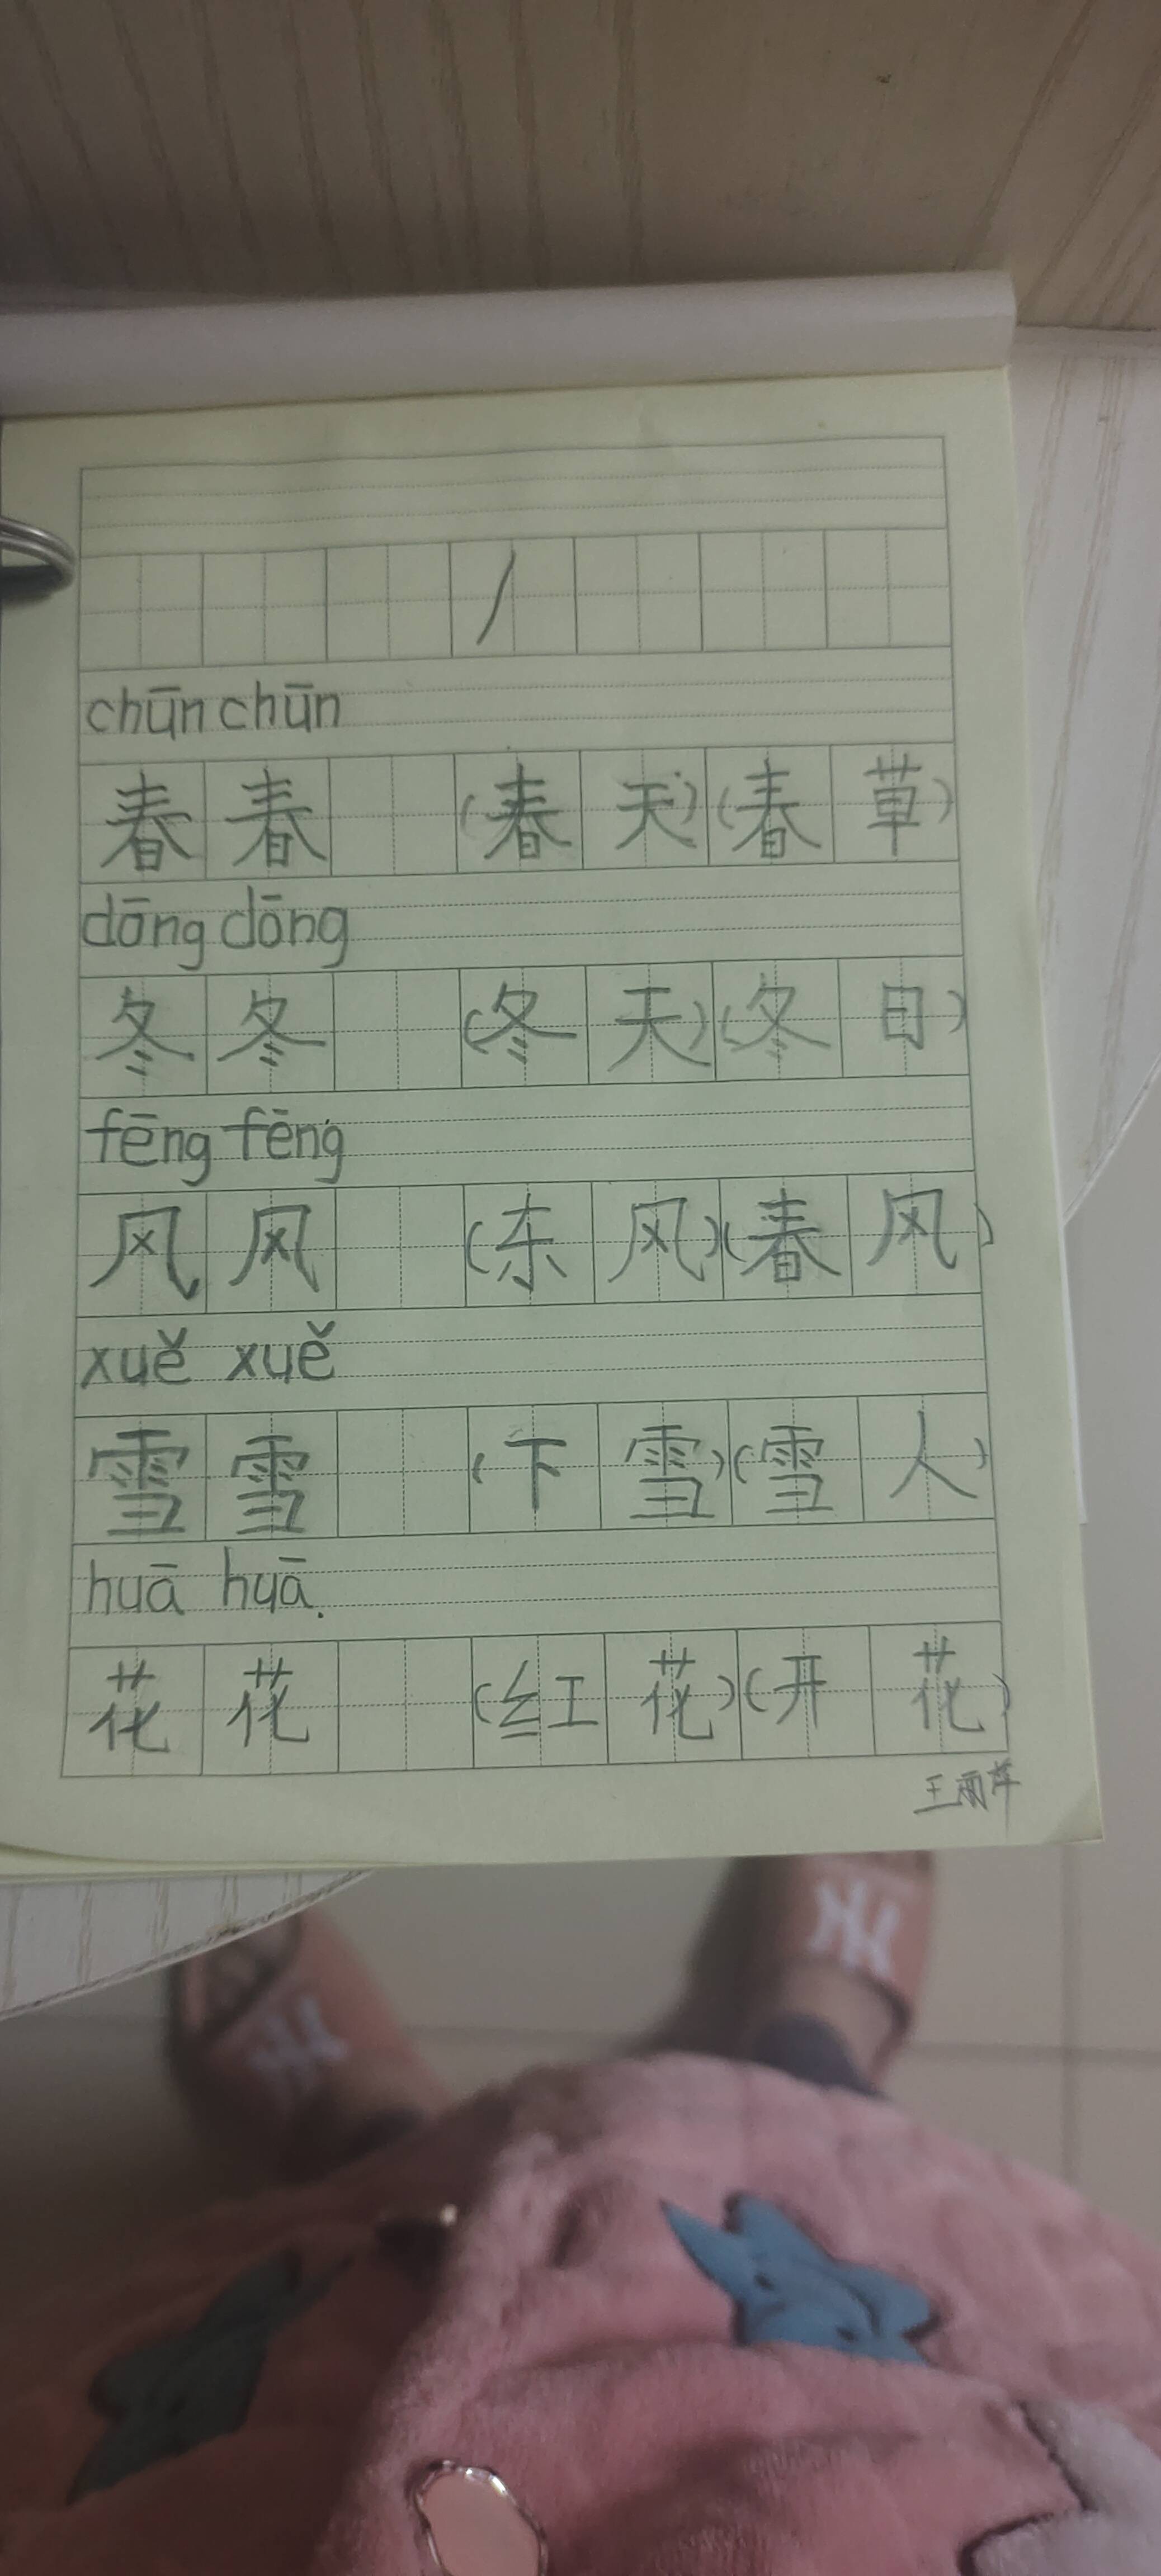 1
chūn chūn
春 春 (春 天) (春 草)
dōng dōng
冬 冬 (冬 天) (冬 日)
fēng fēng
风 风 (东 风) (春 风)
xuě xuě
雪 雪 (下 雪) (雪 人)
huā huā.
花 花 (红 花) (开 花)
王雨
NY
NY